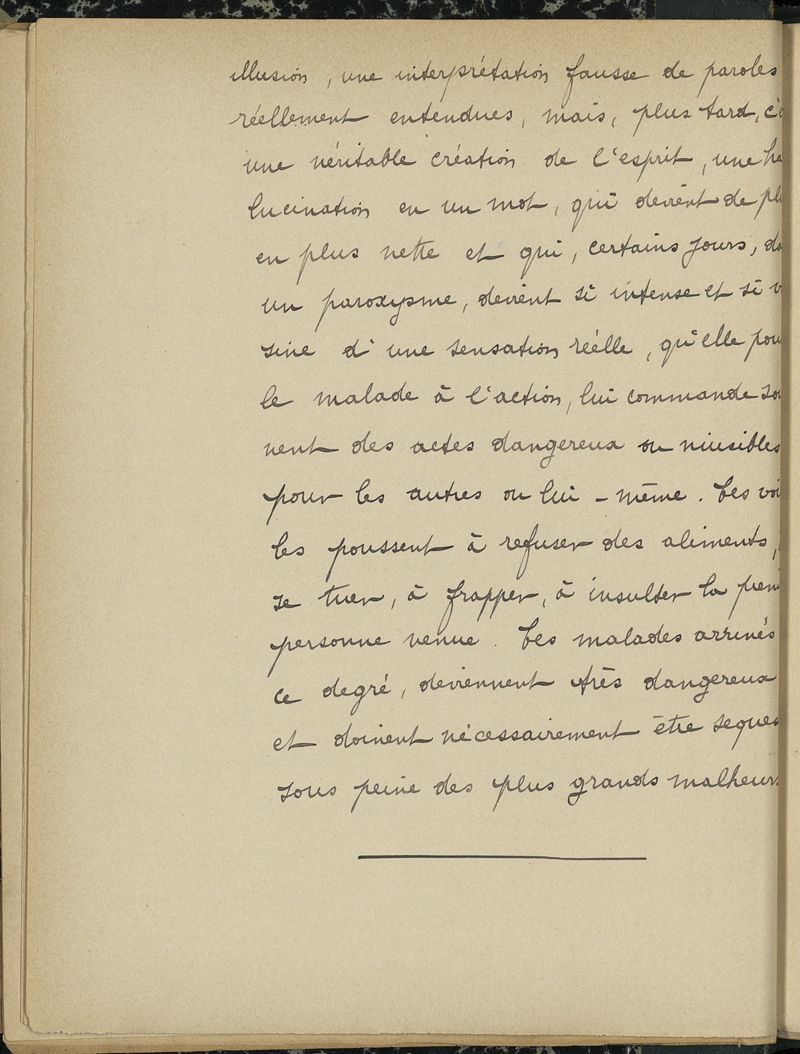 illusion, une interprétation fausse de paroles
réellement entendues, mais, plus tard, c'e
une véritable création de l'esprit, une ha
lucination en un mot, qui devient de pl
en plus nette et qui, certains jours, da
un paroxysme, devient si intense et si v
sine d'une sensation réelle, qu'elle pou
le malade à l'action, lui commande sou
vent des actes dangereux ou nuisibles
pour les autres ou lui-même. Les voi
les poussent à refuser des aliments,
se tuer, à frapper, à insulter la prem
personne venue. Les malades arrivés
ce degré, deviennent très dangereux
et doivent nécessairement être seques
sous peine des plus grands malheurs